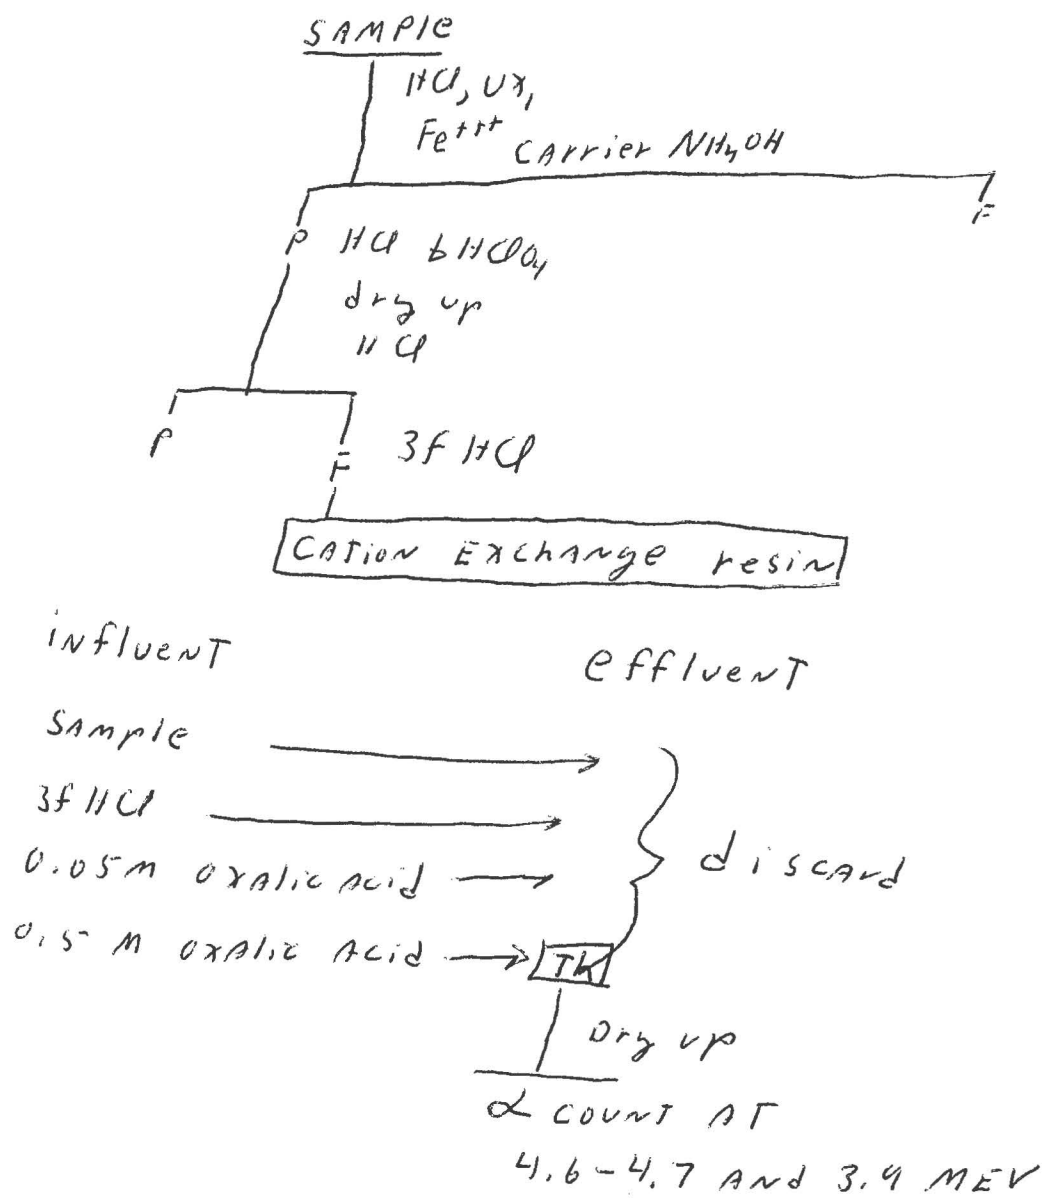 SAMPLE
HCl, UX,
Fe+++ CArrier NH4OH
F
P HCl 6HClO4
dry up
HCl
P
F 3f HCl
CATioN ExchANge resiN
iNflueNT
effluenT
SAmple
3f HCl
discArd
0.05M oxAlic Acid
0.5 M oxAlic Acid
Th
Dry up
α couNT AT
4.6-4.7 ANd 3.9 MEV